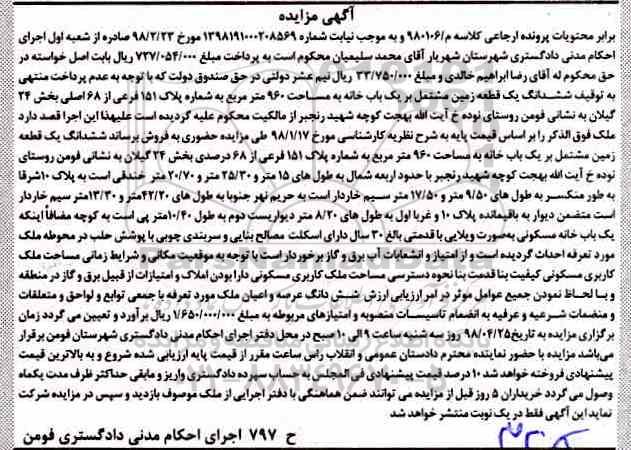 آگهی مزایده
برابر محتویات پرونده ارجاعی کلاسه م/۹۸۰۱۰۶ و به موجب نیابت شماره ۱۳۹۸۱۹۱۰۰۰۲۰۸۵۶۹ مورخ ۹۸/۲/۲۳ صادره از شعبه اول اجرای
احکام مدنی دادگستری شهرستان شهریار آقای محمد سلیمیان محکوم است به پرداخت مبلغ ۷۳۷/۰۵۴/۰۰۰ ریال بابت اصل خواسته در
حق محکوم له آقای رضا ابراهیم خالدی و مبلغ ۳۳/۷۵۰/۰۰۰ ریال نیم عشر دولتی در حق صندوق دولت که با توجه به عدم پرداخت منتهی
به توقیف ششدانگ یک قطعه زمین مشتمل بر یک باب خانه به مساحت ۹۶۰ متر مربع به شماره پلاک ۱۵۱ فرعی از ۶۸ اصلی بخش ۲۴
گیلان به نشانی فومن روستای نوده خ آیت الله بهجت کوچه شهید رنجبر از مالکیت محکوم علیه گردیده است علیهذا این اجرا قصد دارد
ملک فوق الذکر را بر اساس قیمت پایه به شرح نظریه کارشناسی مورخ ۹۸/۱/۱۷ طی مزایده حضوری به فروش برساند ششدانگ یک قطعه
زمین مشتمل بر یک باب خانه به مساحت ۹۶۰ متر مربع به شماره پلاک ۱۵۱ فرعی از ۶۸ درصدی بخش ۲۴ گیلان به نشانی فومن روستای
نوده خ آیت الله بهجت کوچه شهید رنجبر با حدود اربعه شمال به طول های ۱۵ متر و ۲۵/۳۰ متر و ۲۰/۷۰ متر خندقی است به پلاک ۱۰شرقا
به طور منکسر به طول های ۹/۵۰ متر و ۱۷/۵۰ متر سیم خاردار است به حریم نهر جنوبا به طول های ۴۲/۲۰متر و ۱۳/۳۰متر سیم خاردار
است متضمن دیوار به باقیمانده پلاک ۱۰ و غربا اول به طول های ۸/۲۰ متر دیواریست دوم به طول ۱۰/۴۰متر پی است به کوچه مضافاً اینکه
یک باب خانه مسکونی به‌صورت ویلایی با قدمتی بالغ ۳۰ سال دارای اسکلت مصالح بنایی و سربندی چوبی با پوشش حلب در محوطه ملک
مورد تعرفه احداث گردیده است و از امتیاز و انشعابات آب برق و گاز برخوردار است با توجه به موقعیت مکانی و شرایط زمانی مساحت ملک
کاربری مسکونی کیفیت بنا قدمت بنا نحوه دسترسی مساحت ملک کاربری مسکونی دارا بودن املاک و امتیازات از قبیل برق و گاز در منطقه
و با لحاظ نمودن جمیع عوامل موثر در امر ارزیابی ارزش شش دانگ عرصه و اعیان ملک مورد تعرفه با جمعی توابع و لواحق و متعلقات
و منضمات شرعیه و عرفیه به انضمام تاسیسات منصوبه و امتیازهای مربوطه به مبلغ ۱/۶۵۰/۰۰۰/۰۰۰ ریال برآورد و تعیین می گردد زمان
برگزاری مزایده به تاریخ۹۸/۰۴/۲۵ روز سه شنبه ساعت ۹ الی ۱۰ صبح در محل دفتر اجرای احکام مدنی دادگستری شهرستان فومن برقرار
می‌باشد مزایده با حضور نماینده محترم دادستان عمومی و انقلاب راس ساعت مقرر از قیمت پایه ارزیابی شده شروع و به بالاترین قیمت
پیشنهادی فروخته خواهد شد ۱۰ درصد قیمت پیشنهادی فی المجلس به حساب سپرده دادگستری واریز و مابقی حداکثر ظرف مدت یکماه
وصول می گردد خریداران ۵ روز قبل از مزایده می توانند ضمن هماهنگی با دفتر اجرایی از ملک موصوف بازدید و سپس در مزایده شرکت
نماید این آگهی فقط در یک نوبت منتشر خواهد شد
ح ۷۹۷ اجرای احکام مدنی دادگستری فومن